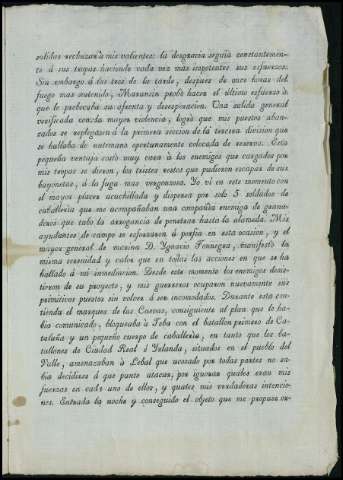 salidas rechazan à mis valientes: la desgracia seguia constantemen-
te á sus tropas haciendo cada vez mas impotentes sus esfuerzos.
Sin embargo á las tres de la tarde, despues de once horas del
fuego mas sostenido, Maransin probó hacer el último esfuerzo á
que le probocaba su afrenta y desesperacion. Una salida general
verificada con la mayor violencia, logró que mis puestos aban-
zados se replegasen á la primera seccion de la tercera division que
se hallaba de antemano oportunamente colocada de reserva. Esta
pequeña ventaja costó muy cara à los enemigos que cargados por
mis tropas se dieron, los tristes restos que pudieron escapar de sus
bayonetas, á la fuga mas vergonzosa. Yo ví en este momento con
el mayor placer acuchillada y dispersa por solo 5 soldados de
caballería que me acompañaban una compañía enemiga de grana-
deros que tubo la arrogancia de penetrar hasta la alameda. Mis
ayudantes de campo se esforzaron á porfia en esta ocasion, y el
mayor general de vocsina D. Ygnacio Fonnegra, manifestó la
misma serenidad y valor que en todas las acciones en que se ha
hallado á mi inmediacion. Desde este momento los enemigos desis-
tieron de su proyecto, y mis guerreros ocuparon nuevamente sus
primitivos puestos sin volver á ser incomodados. Durante esta con-
tienda el marques de las Cuevas, consiguiente al plan que le ha-
bia comunicado, bloqueaba á Teba con el batallon primero de Ca-
taluña y un pequeño cuerpo de caballería, en tanto que los ba-
tallones de Ciudad Real é Yrlanda, situados en el pueblo del
Valle, amenazaban à Lebal que acosado por todas partes no sa-
bia decidirse á que punto atacar, por ignorar quales eran mis
fuerzas en cada uno de ellos, y quales mis verdaderas intencio-
nes. Entrada la noche y conseguido el objeto que me propuse or-